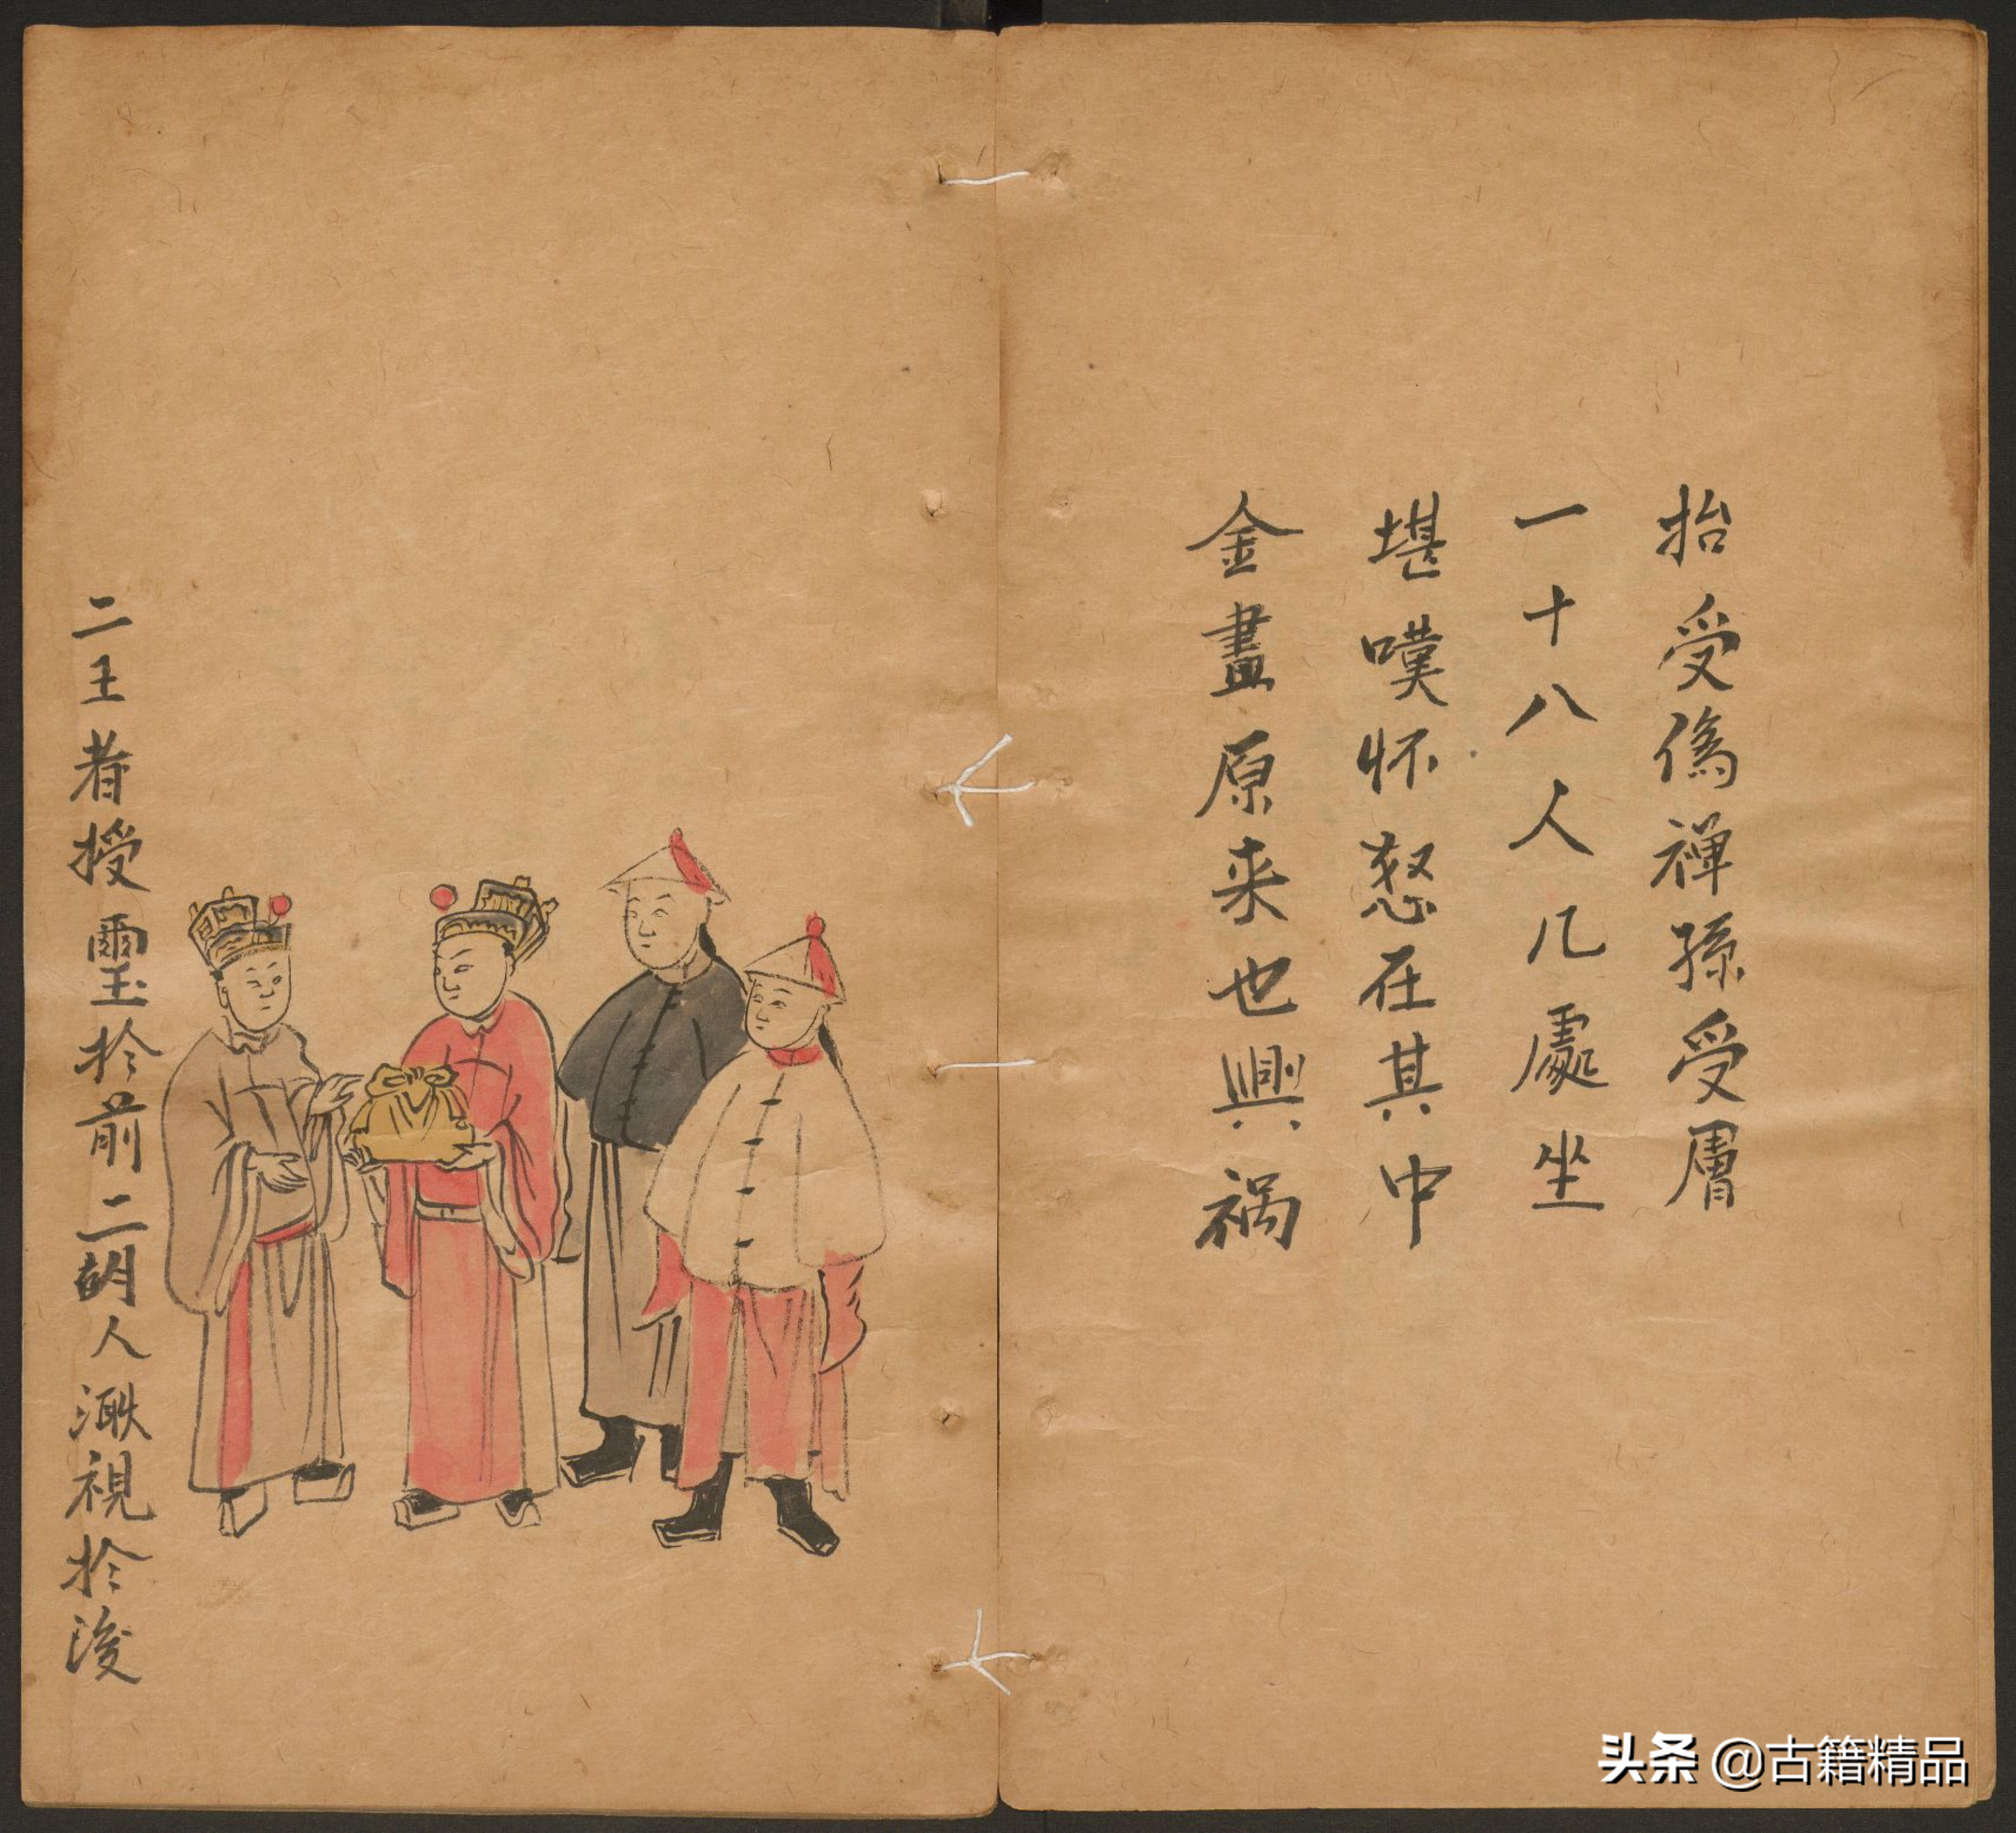 抬受僞禅孫受膚
一十八人几處坐
堪嘆怀怒在其中
金畫原来也興祸
二王者授璽於前二胡人溵視於浚
头条 @古籍精品